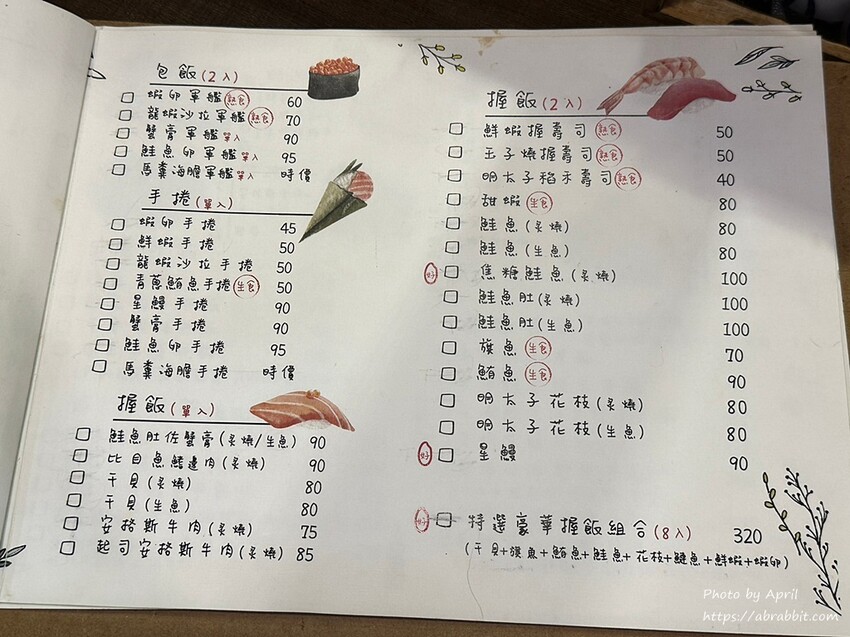 包飯(2入)
蝦卵軍艦 熟食 60
龍蝦沙拉軍艦 熟食 70
蟹膏軍艦 單入 90
鮭魚卵軍艦 單入 95
馬糞海膽軍艦 單入 時價
手捲(單入)
蝦卵手捲 45
鮮蝦手捲 50
龍蝦沙拉手捲 50
青蔥鮪魚手捲 生食 50
星鰻手捲 90
蟹膏手捲 90
鮭魚卵手捲 95
馬糞海膽手捲 時價
握飯(單入)
鮭魚肚佐蟹膏(炙燒/生魚) 90
比目魚鰭邊肉(炙燒) 90
干貝(炙燒) 80
干貝(生魚) 80
安格斯牛肉(炙燒) 75
起司安格斯牛肉(炙燒) 85
握飯(2入)
鮮蝦握壽司 熟食 50
玉子燒握壽司 熟食 50
明太子稻禾壽司 熟食 40
甜蝦 生食 80
鮭魚(炙燒) 80
鮭魚(生魚) 80
好 焦糖鮭魚(炙燒) 100
鮭魚肚(炙燒) 100
鮭魚肚(生魚) 100
旗魚 生食 70
鮪魚 生食 90
明太子花枝(炙燒) 80
明太子花枝(生魚) 80
好 星鰻 90
好 特選豪華握飯組合(8入) 320
(干貝+旗魚+鮪魚+鮭魚+花枝+鰱魚+鮮蝦+蝦卵)
Photo by April
https://abrabbit.com